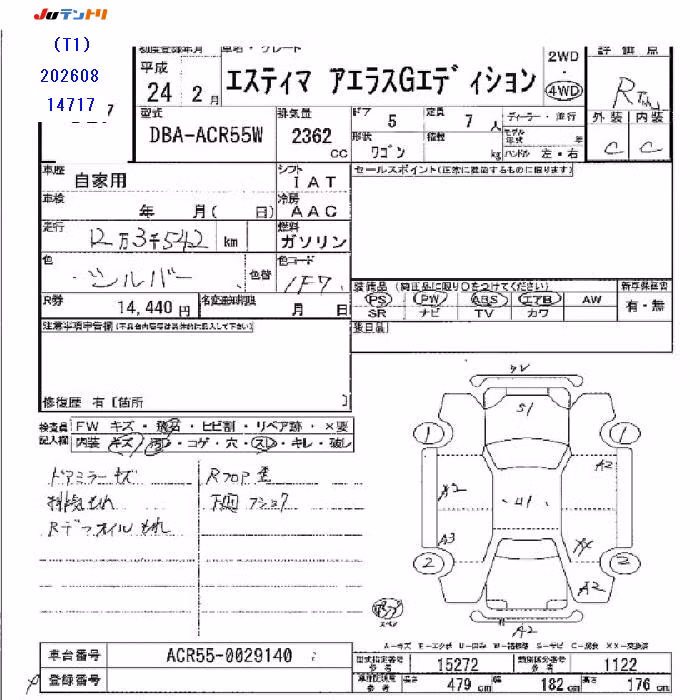 JUテントリ
(T1)
202608
14717
7
初度登録年月 車名・グレード
平成
24 2月
エスティマ アエラスGエディション
2WD
・
4WD
評価点
R
外装 内装
C C
型式
DBA-ACR55W
排気量
2362
cc
ドア
5
定員
7
人
形状
ワゴン
積載
kg
ディーラー・並行
モデル年式 年
ハンドル 左・右
車歴
自家用
シフト
IAT
セールスポイント(正常に機能するものに限ります)
車検
年 月( 日)
冷房
AAC
走行
12万3千542 km
燃料
ガソリン
色
シルバー
色替
色コード
1F7
R券
14,440円
名変期限
月 日
装備品 (純正品に限り○をつけてください)
PS PW ABS エアB AW
SR ナビ TV カワ
新車保証書
有・無
注意事項申告欄(不具合内容等は具体的に記入して下さい)
修復歴 有 [箇所 ]
検査員記入欄
FW キズ・飛石・ヒビ割・リペア跡・×要
内装 キズ・汚・コゲ・穴・スレ・キレ・破レ
ドアミラーキズ
排気もれ
Rデフオイルもれ
Rフロア歪
下回フショク
S1
1
1
A2
A2
U1
A3
XX
2
2
A2
A2
スペア
A-キズ E-エクボ U-凹み W-補修跡 S-サビ C-腐食 XX-交換済
車台番号
ACR55-0029140
登録番号
型式指定番号
参考
15272
類別区分番号
参考
1122
車両記載寸
参考
長さ
479 cm
幅
182 cm
高さ
176 cm